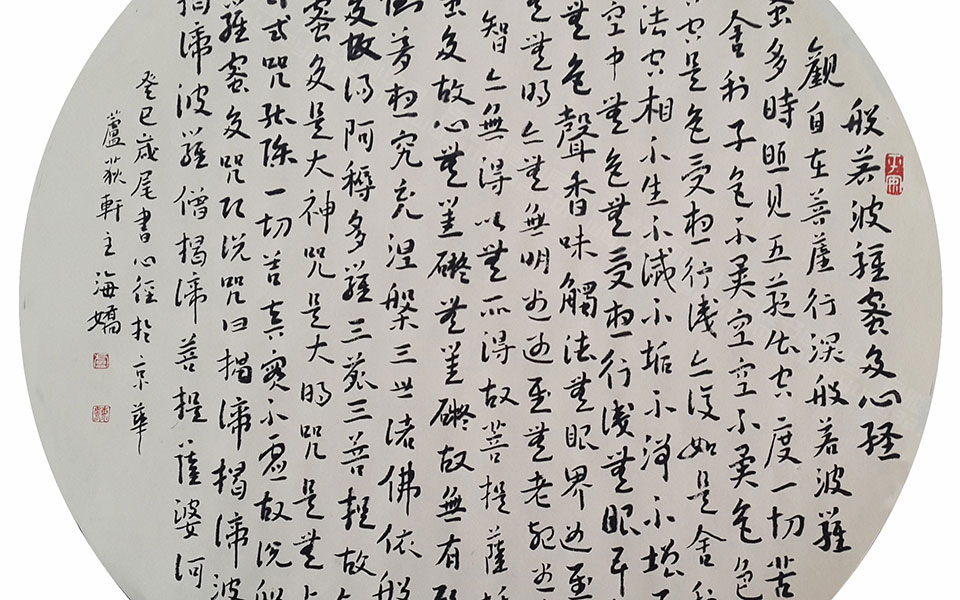 般若波羅蜜多心経
觀自在菩薩行深般若波羅
蜜多時照見五蘊皆空度一切苦
舍利子色不異空空不異色色
空是色受想行識亦復如是舍利
法空相不生不滅不垢不淨不增不
空中無色無受想行識無眼耳
無色聲香味觸法無眼界乃至
無明亦無無明盡乃至無老死盡
智亦無得以無所得故菩提薩埵
蜜多故心無罣礙無罣礙故無有恐
倒夢想究竟涅槃三世諸佛依般
多故得阿耨多羅三藐三菩提故
蜜多是大神咒是大明咒是無上
等咒能除一切苦真實不虛故說般
羅蜜多咒即說咒曰揭諦揭諦波
揭諦波羅僧揭諦菩提薩婆訶
癸巳歲尾書心經於京華
蘆荻軒主海嬌